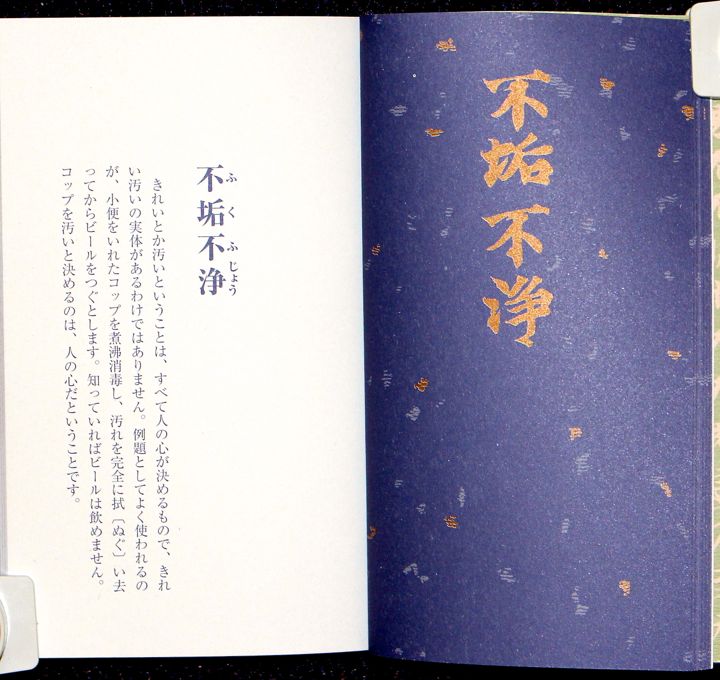 不垢不浄
不垢不浄
ふくふじょう
きれいとか汚いということは、すべて人の心が決めるもので、きれ
い汚いの実体があるわけではありません。例題としてよく使われるの
が、小便をいれたコップを煮沸消毒し、汚れを完全に拭〔ぬぐ〕い去
ってからビールをつぐとします。知っていればビールは飲めません。
コップを汚いと決めるのは、人の心だということです。